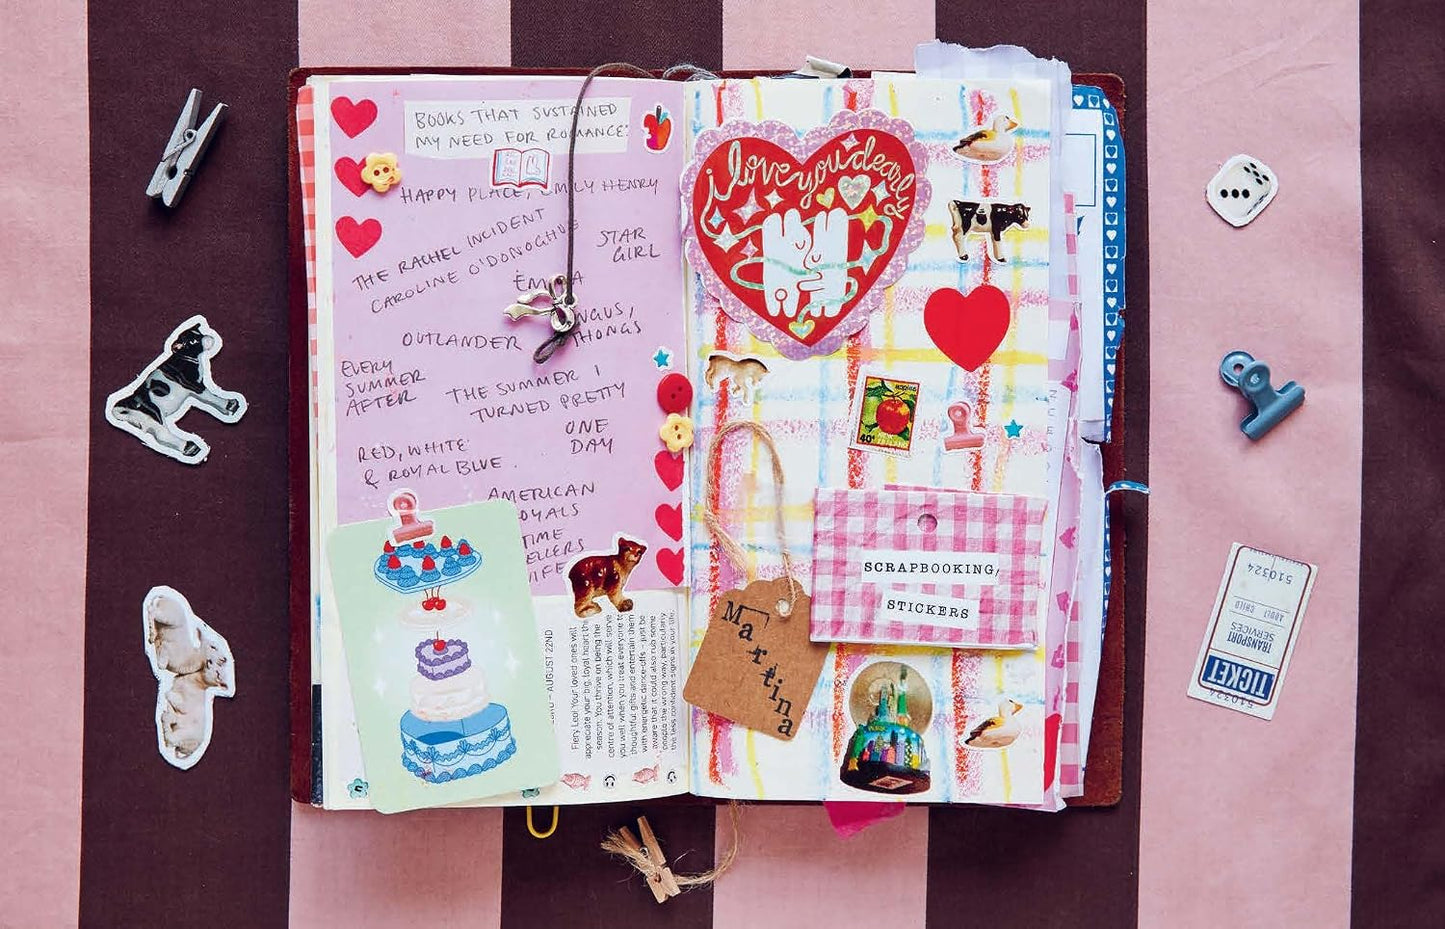 BOOKS THAT SUSTAINED
MY NEED FOR ROMANCE:
HAPPY PLACE, EMILY HENRY
THE RACHEL INCIDENT
CAROLINE O'DONOGHUE
STAR
GIRL
EMMA
OUTLANDER
NGUS,
THONGS
EVERY
SUMMER
AFTER
THE SUMMER I
TURNED PRETTY
ONE
DAY
RED, WHITE
& ROYAL BLUE
AMERICAN
ROYALS
TIME
ELLERS
WIFE
AUGUST 22ND
Fiery Leo! Your loved ones will
appreciate your big, loyal heart this
season. You thrive on being the
centre of attention, which will serve
you well when you treat everyone to
thoughtful gifts and entertain them
with energetic dance-offs – just be
aware that it could also rub some
people the wrong way, particularly
the less confident signs in your life.
i love you dearly
40c
SCRAPBOOKING/
STICKERS
Martina
510324
ADULT CHILD
TRANSPORT
SERVICES
TICKET
510324